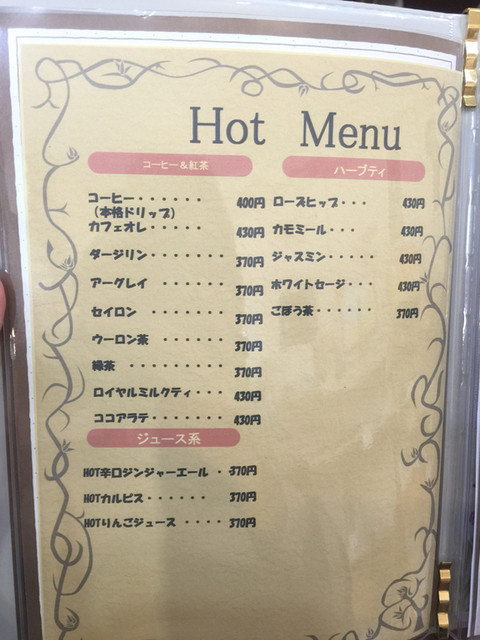 Hot Menu
コーヒー＆紅茶
コーヒー・・・・・・ 400円
（本格ドリップ）
カフェオレ・・・・・ 430円
ダージリン・・・・・・・ 370円
アーグレイ ・・・・・・ 370円
セイロン ・・・・・・ 370円
ウーロン茶 ・・・・・・ 370円
緑茶 ・・・・・・・・ 370円
ロイヤルミルクティ・・・ 430円
ココアラテ・・・・・・・ 430円
ジュース系
HOT辛口ジンジャーエール ・・370円
HOTカルピス・・・・・・ 370円
HOTりんごジュース ・・・・ 370円
ハーブティ
ローズヒップ・・・ 430円
カモミール・・・ 430円
ジャスミン・・・・・ 430円
ホワイトセージ・・・ 430円
ごぼう茶・・・・・・・ 370円